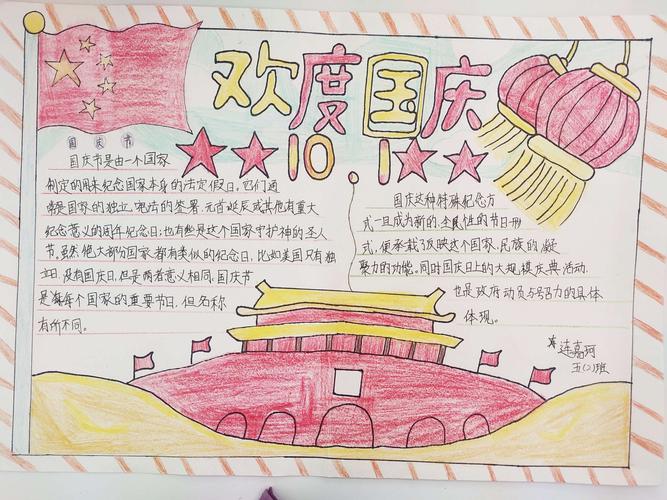 欢度国庆
10.1
国庆节
国庆节是由一个国家
制定的用来纪念国家本身的法定假日。它们通
常是国家的独立、宪法的签署、元首诞辰或其他有重大
纪念意义的周年纪念日；也有些是这个国家守护神的圣人
节。虽然绝大部分国家都有类似的纪念日，比如美国只有独
立日，没有国庆日，但是两者意义相同。国庆节
是每个国家的重要节日，但名称
有所不同。
国庆这种特殊纪念方
式一旦成为新的、全民性的节日形
式，便承载了反映这个国家、民族的凝
聚力的功能。同时国庆日上的大规模庆典活动，
也是政府动员与号召力的具体
体现。
连嘉珂
五(2)班